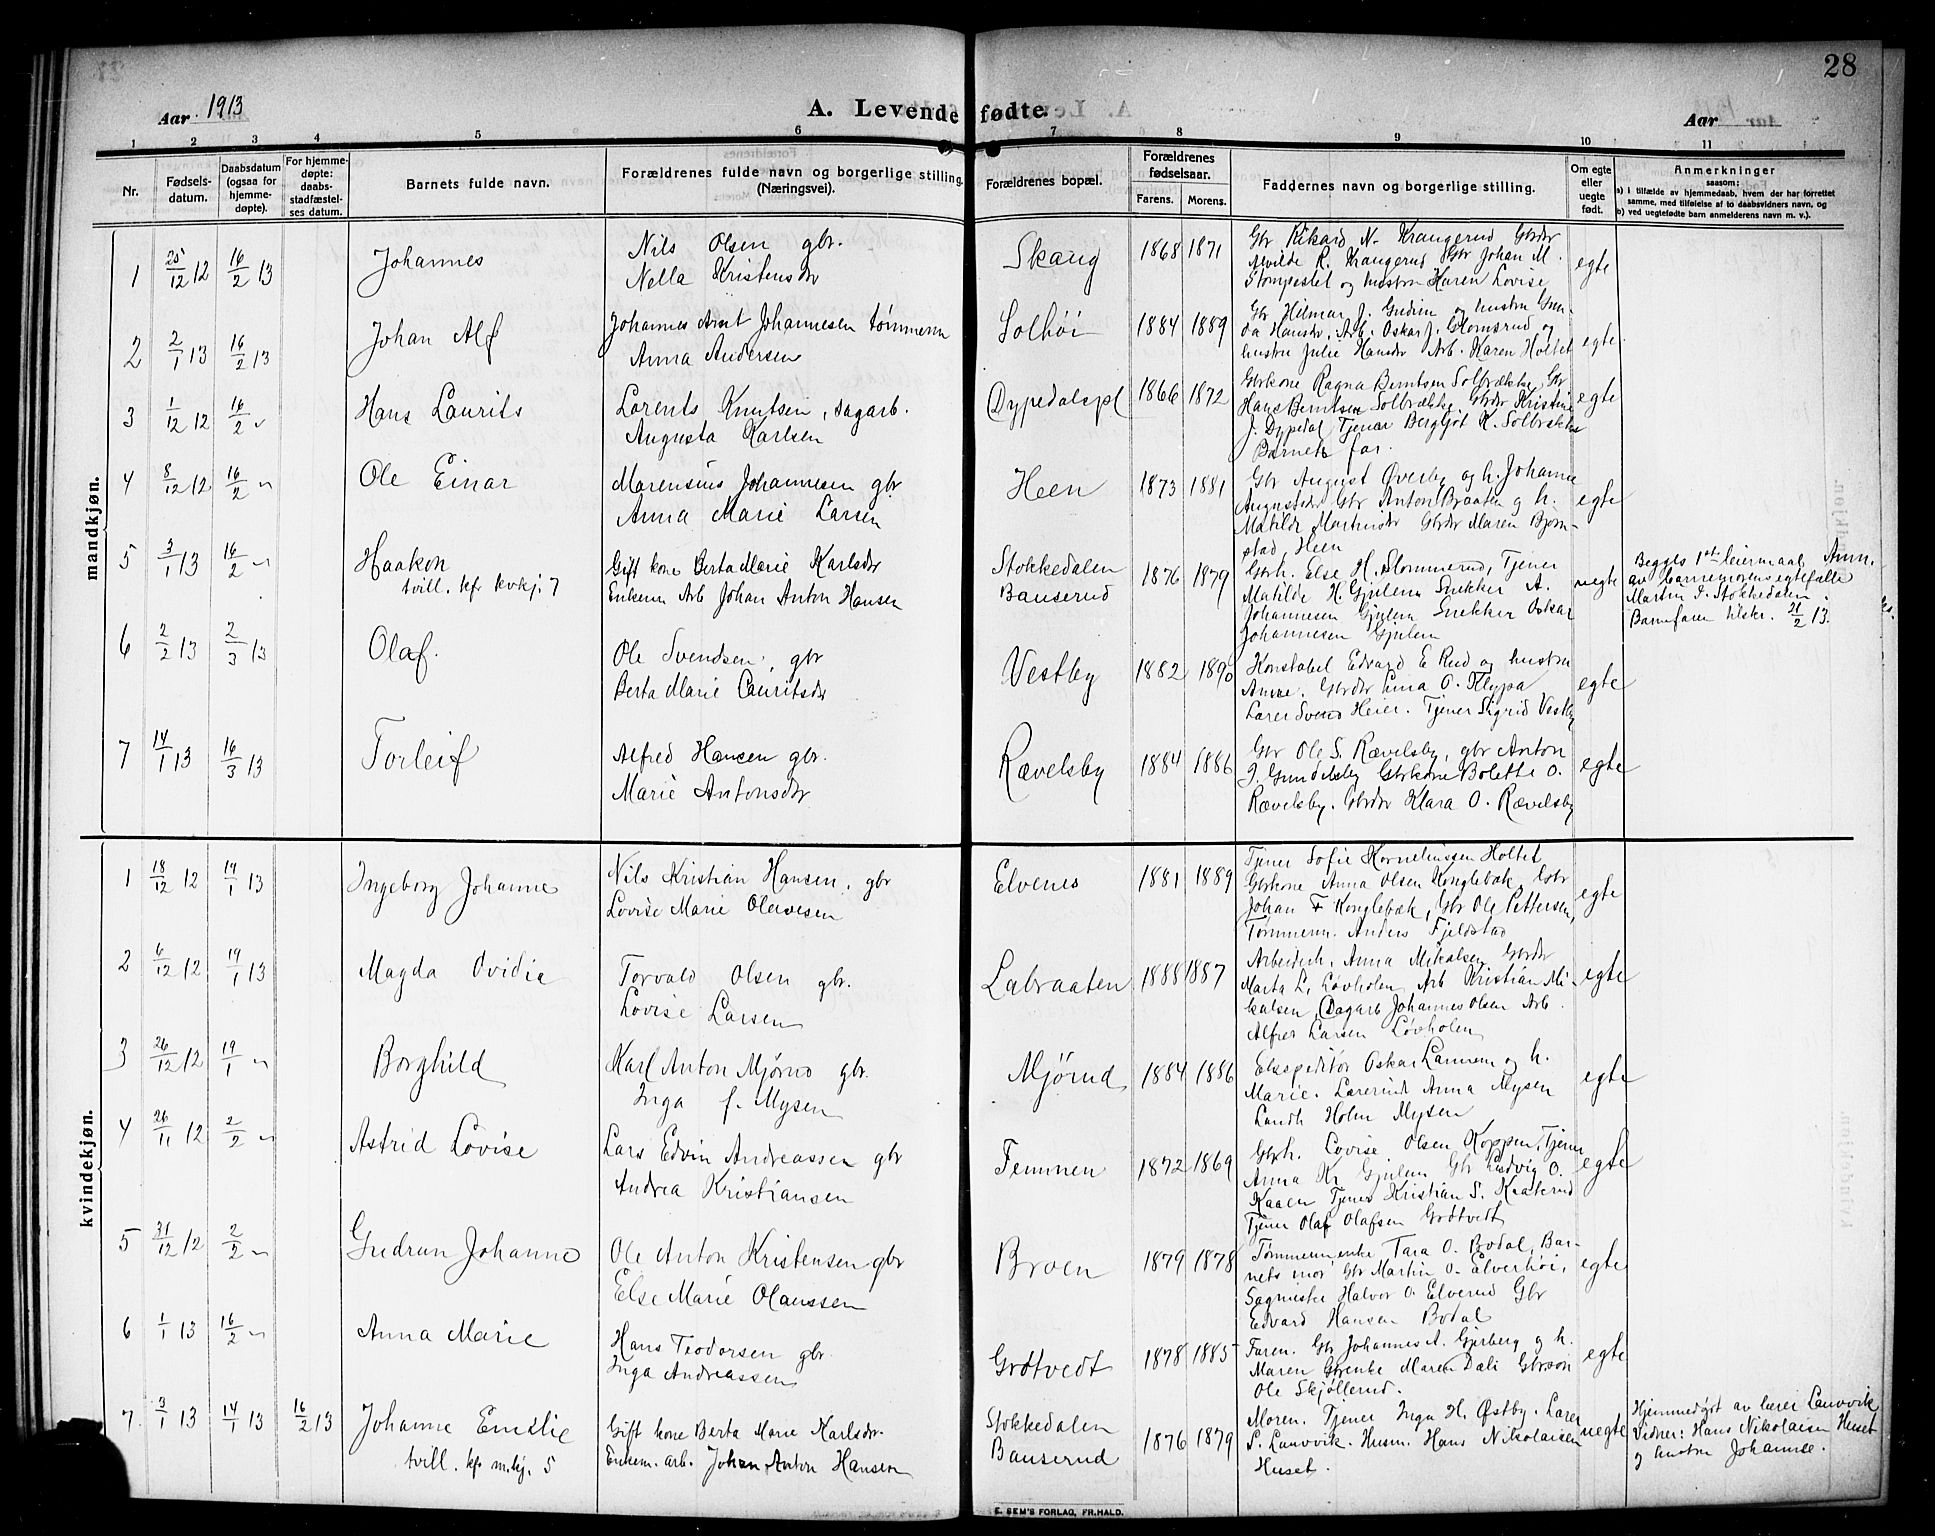 28
Aar 1913
A. Levende fødte.
Aar
1 2 3 4 5 6 7 8 9 10 11
Nr.
Fødsels-
datum.
Daabsdatum
(ogsaa for
hjemme-
døpte).
For hjemme-
døpte:
daabs-
stadfæstel-
ses datum.
Barnets fulde navn.
Forældrenes fulde navn og borgerlige stilling.
(Næringsvei).
Forældrenes bopæl.
Forældrenes
fødselsaar.
Farens. Morens.
Faddernes navn og borgerlige stilling.
Om egte
eller
uegte
født.
Anmerkninger
saasom:
a) i tilfælde av hjemmedaab, hvem der har forrettet
samme, med tilføielse af to daabsvidners navn, og
b) ved uegtefødte barn anmelderens navn m. v.).
mandkjøn.
1 25/12 12 16/2 13 Johannes
Nils Olsen gbr.
Nella Kristensdr
Skaug 1868 1871
Gbr Rikard N. Krangerud Gbrdr
Alvilde R. Krangerud Gbr Johan M.
Stompestet og hustru Karen Lovise
egte
2 2/1 13 16/2 13 Johan Alf
Johannes Arnt Johannesen tømmerm
Anna Andersen
Solhöi 1884 1889
Gbr Hilmar J. Gudim og hustru Gun-
da Hansdr, Arb. Oskar J. Glomsrud og
hustru Julie Hansdr Arb. Karen Holtet
egte.
3 1/12 12 16/2 " Hans Laurits
Lorents Knutsen, sagarb.
Augusta Karlsen
Dypedalspl 1866 1872
Gbrkone Ragna Berntsen Solbrække Gbr
Hans Berntsen Solbrække Gbrdr Kristine
J. Dypedal Tjener Bergljot K. Solbrække
Barnets far.
egte
4 8/12 12 16/2 " Ole Einar
Marensius Johannesen gbr
Anna Marie Larsen
Heen 1873 1881
Gbr August Øverby og h. Johanne
Augustsdr Gbr Anton Braaten g h.
Matilde Martinsdr Gbrdr Maren Bjørn-
stad, Heen
egte
5 3/1 13 16/2 " Haakon
tvill. kfr kvkj. 7
Gift kone Berta Marie Karlsdr
Enkem Arb Johan Anton Hansen
Stokkedalen
Bauserud
1876 1879
Gbrh. Else H. Slommerud, Tjener
Matilde H Gjulem Snekker A.
Johannesen Gjulem Snekker Oskar
Johannesen Gjulem
uegte
Begges 1ste leiermaal Anm.
av barnemorens egtefælle
Martin I. Stokkedalen.
Barnefaren tilskr. 21/2 13.
6 2/2 13 2/3 13 Olaf.
Ole Svendsen, gbr
Berta Marie Lauritsdr
Vestby 1882 1890
Konstabel Edvard E Rud og hustru
Anna. Gbrdr Lina O. Kleppa
Lærer Svend Heier. Tjener Sigrid Vestby
egte
7 14/1 13 16/3 13 Torleif
Alfred Hansen gbr.
Marie Antonsdr
Rævelsby 1884 1886
Gbr Ole S. Rævelsby, gbr Anton
J. Gundelsby Gbrkone Bolette O.
Rævelsby. Gbrdr Klara O. Rævelsby
egte
kvindekjøn.
1 18/12 12 19/1 13 Ingeborg Johanne
Nils Kristian Hansen, gbr
Lovise Marie Olavesen
Elvenes 1881 1889
Tjener Sofie Korneliussen Holtet
Gbrkone Anna Olsen Konglebæk, Gbr
Johan F Konglebæk, Gbr Ole Pettersen,
Tømmerm. Anders Fjeldstad
egte
2 6/12 12 19/1 13 Magda Ovidia
Torvald Olsen gbr.
Lovise Larsen
Labraaten 1888 1887
Arbeidsk. Anna Mikalsen Gbrdr
Marta L. Løvholen Arb Kristian Mi-
kalsen, Sagarb Johannes Olsen Arb.
Alfred Larsen Løvholen
egte
3 26/12 12 19/1 " Borghild
Karl Anton Mjørud gbr.
Inga f. Mysen
Mjørud 1884 1886
Ekspeditør Oskar Lannem og h.
Marie. Lærerinde Anna Mysen
Landh Holm Mysen
egte
4 26/11 12 2/2 " Astrid Lovise
Lars Edvin Andreassen gbr
Andrea Kristiansen
Temmen 1872 1869
Gbrh. Lovise Olsen Koppen, Tjener
Anna Kr Gjulem Gbr Ludvig O.
Kaaen Tjener Kristian S. Knaterud
Tjener Olaf Olafsen Grötvedt
egte
5 31/12 12 2/2 " Gudrun Johanne
Ole Anton Kristensen gbr
Else Marie Olaussen
Broen 1879 1878
Tømmerm.enke Tara O. Bodal, Bar-
nets mor Gbr Martin O. Elverhöi,
Sagmester Halvor O. Elverud Gbr
Edvard Hansen Bodal
egte
6 1/1 13 16/2 " Anna Marie
Hans Teodorsen gbr.
Inga Andreassen
Grötvedt 1878 1885
Faren. Gbr Johannes A. Gjerberg og h.
Maren Gbrenke Maren Dali Gbrsøn
Ole Skjøllerud.
egte
7 3/1 13 14/1 13 16/2 13 Johanne Emelie
tvill. kfr m.kj. 5
Gift kone Berta Marie Karlsdr.
Enkem. arb. Johan Anton Hansen
Stokkedalen
Bauserud
1876 1879
Moren. Tjener Inga H. Østby. Lærer
S. Lauvvik. Husm. Hans Nikolaisen
Huset.
uegte
Hjemmedøpt av lærer Lauvvik
Vidner: Hans Nikolaisen Huset
og hustru Johanne.
E. SEM'S FORLAG, FR.HALD.